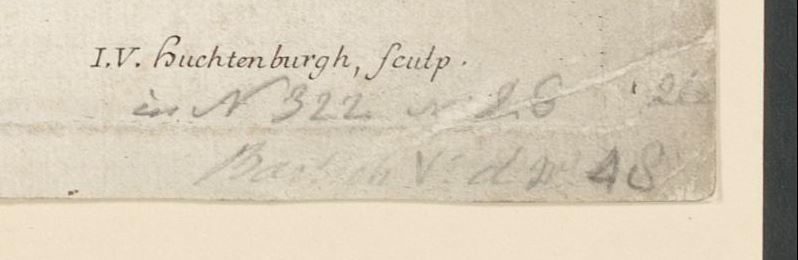 I.V. Huchtenburgh, sculp.
in N 322 N 28 26
Bartsch V: d N: 48